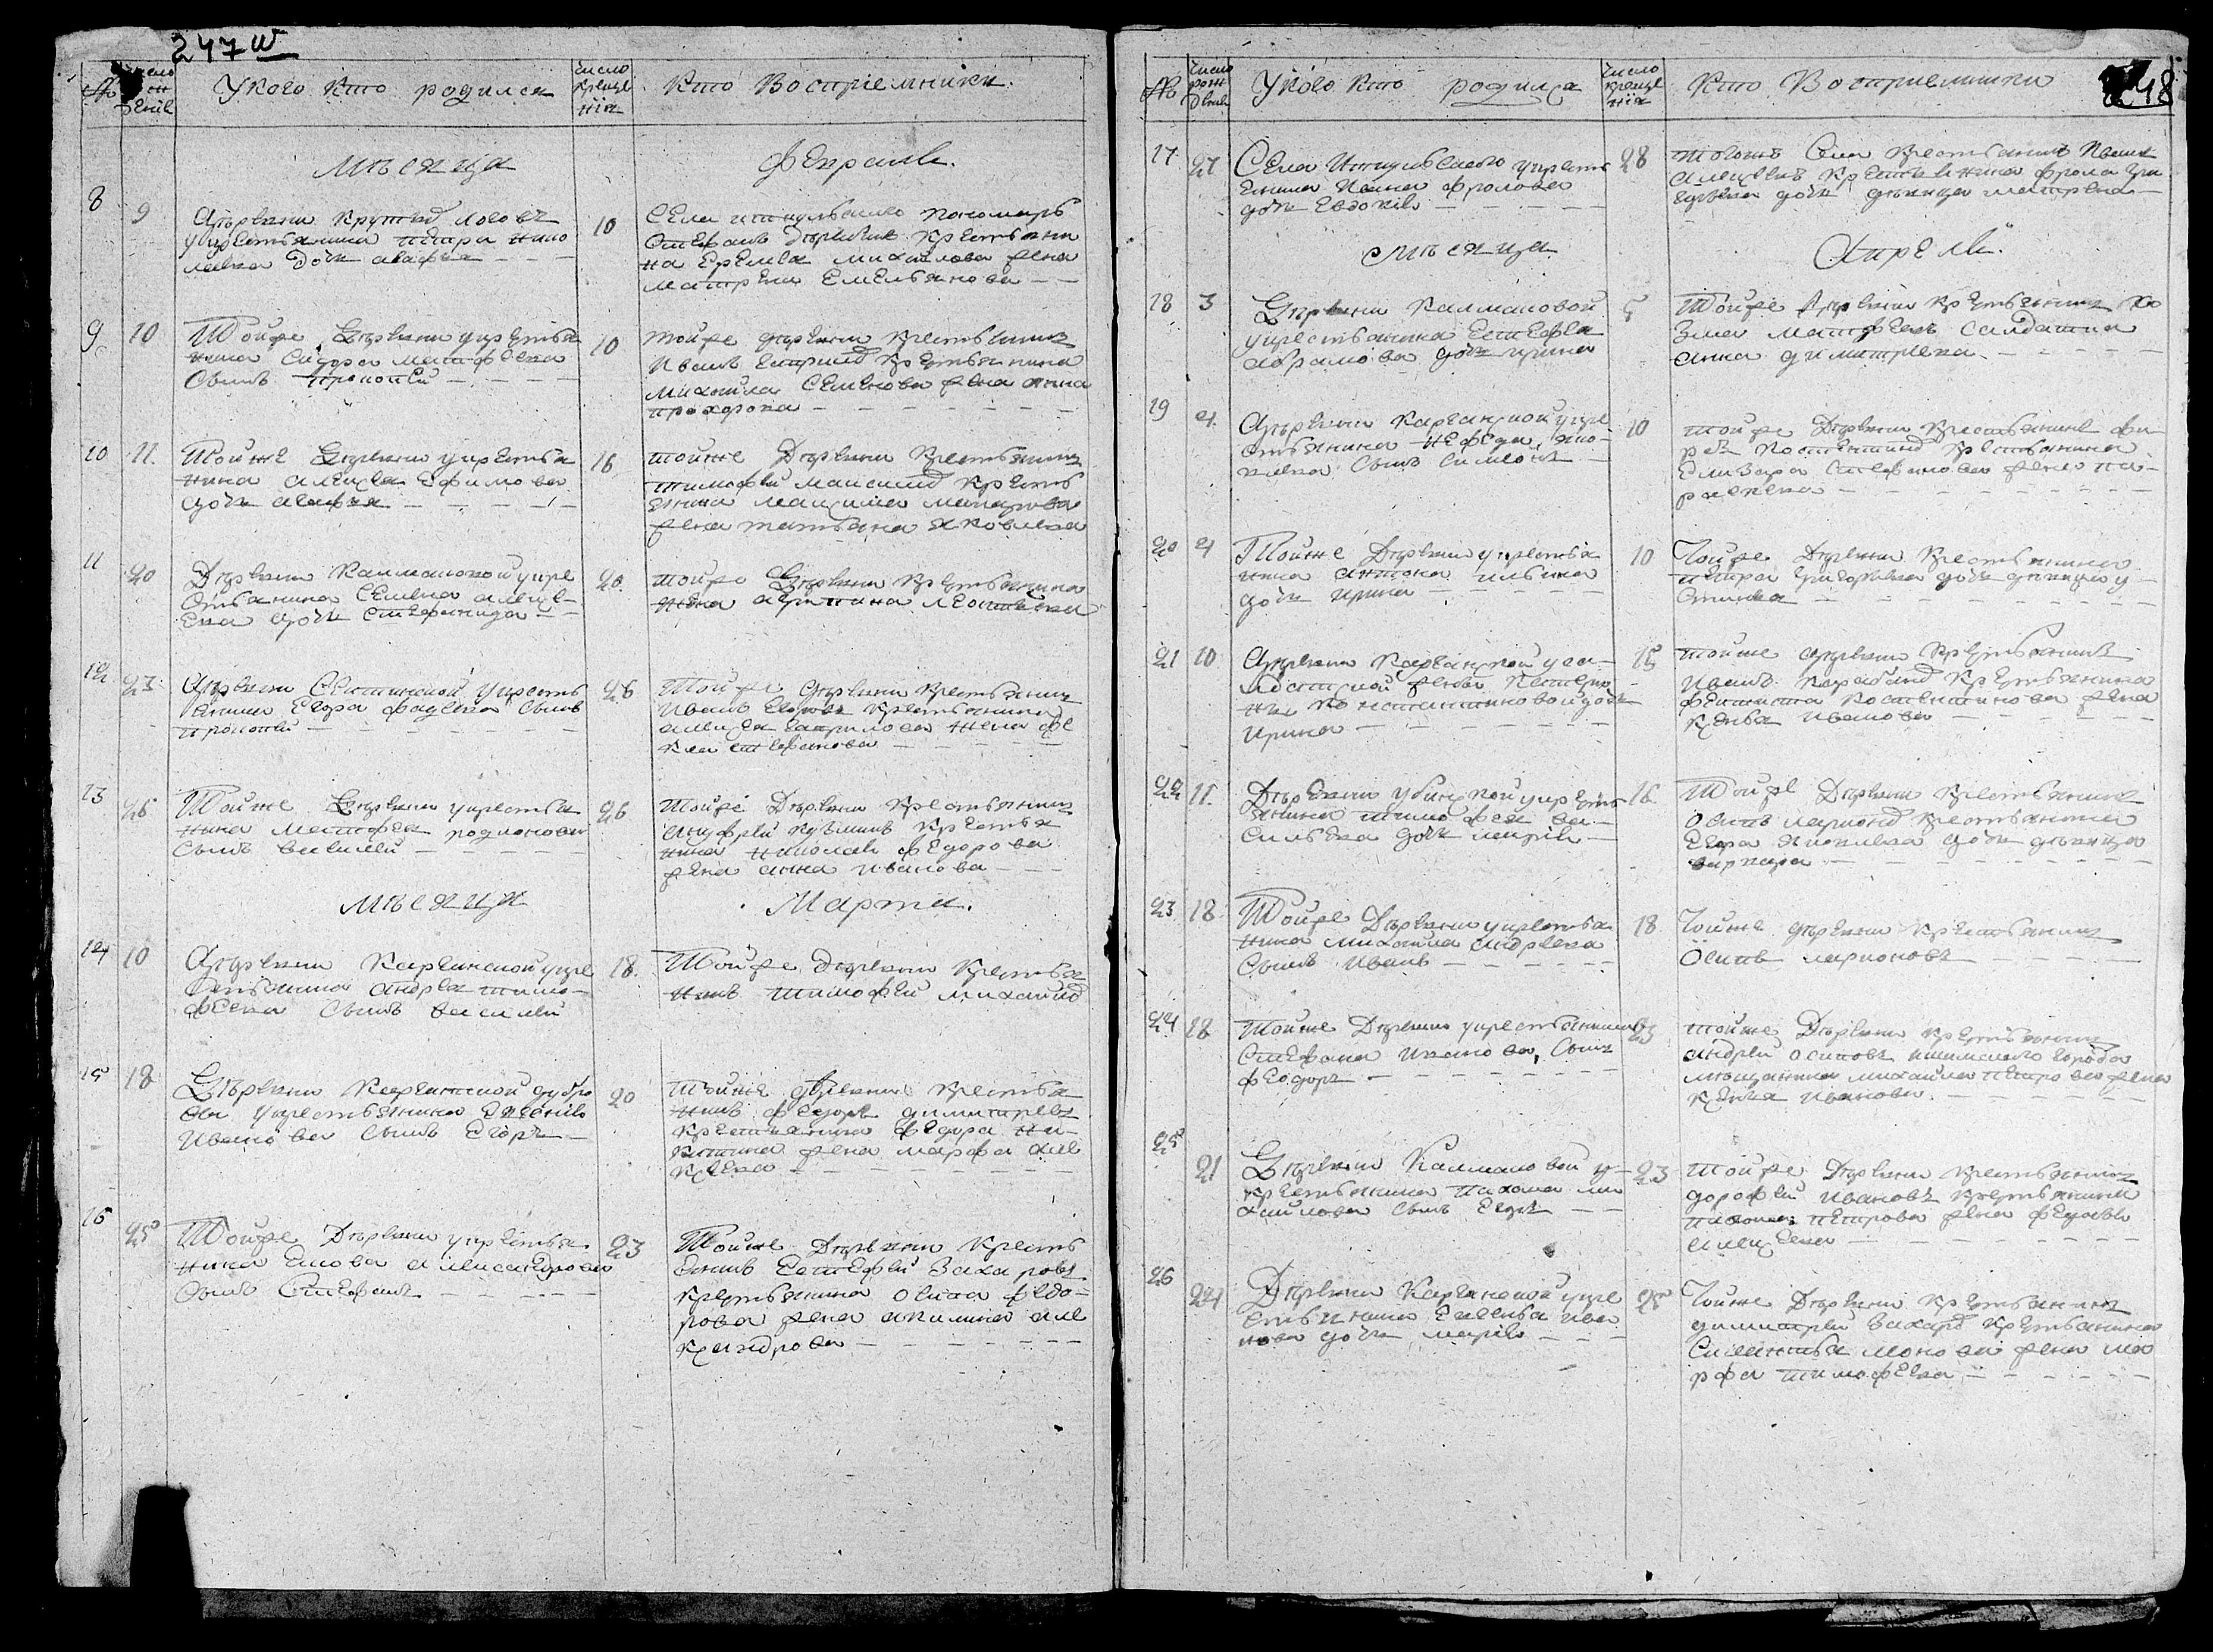 247 W
№
число
рож
дения
У кого кто родился
число
креще
нія
Кто Восприемники
мѣсяца
Февраля.
8
9
Деревни Крутыя логовъ
у крестьянина петра нико
лаева дочь агафья
10
Села иткульскаго пономарь
Стефанъ деревни крестьяни
на Еремея михайлова жена
матрена Емельянова
9
10
Тойже Деревни у крестья
нина Сидора матфеева
Сынъ прокопей
10
тойже деревни крестьянинъ
Иванъ крестьянина
михаила Семенова жена анна
прохорова
10
11
Тойже Деревни у крестья
нина алексея Ефимова
дочь агафья
16
тойже Деревни крестьянинъ
тимофей крестья
нина максима макарова
жена татьяна яковлева
11
20
Деревни Калмаковой у кре
стьянина Семена алексе
ева дочь стефанида
20
тойже Деревни крестьянина
жена леонтьева
12
23
Деревни у кресть
янина Егора фадеева сынъ
прокопей
26
Тойже Деревни крестьянинъ
Иванъ Егоровъ крестьянина
алексея гаврилова жена фе
кла стефанова
13
26
Тойже Деревни у крестья
нина матфея родионова
Сынъ василей
26
тойже Деревни крестьянинъ
ануфрей кузминъ крестья
нина николая федорова
жена анна иванова
мѣсяца
Марта.
14
10
Деревни Карганской у кре
стьянина андрея тимо
феева Сынъ василей
18
Тойже Деревни крестья
нинъ тимофей михайлов
15
18
Деревни Карганской дубро
вы у крестьянина Евгения
Иванова Сынъ Егоръ
20
Тойже Деревни крестья
нинъ федоръ димитревъ
крестьянина федора ни
китина жена марфа але
ксеева
16
25
Тойже Деревни у крестья
нина александрова
Сынъ Стефанъ
23
Тойже Деревни кресть
янинъ Евстефей Захаровъ
крестьянина осипа федо
рова жена акилина але
ксандрова
48
№
число
рож
дения
У кого кто родился
число
креще
нія
Кто Восприемники
17
27
Села Иткульскаго у кресть
янина Ивана фролова
дочь Евдокия
28
тогожъ Села крестьянинъ Иванъ
алексеевъ крестьянина фрола
дочь девица матрена
мѣсяца
Апреля.
18
3
Деревни Калмаковой
у крестьянина Естефея
абрамова дочь ирина
5
Тойже Деревни крестьянинъ Ко
зма матфеевъ салдатка
анна димитрева
19
4
Деревни Карганской у кре
стьянина нефеда яко
влева Сынъ Симеонъ
10
тойже Деревни крестьянинъ
крестьянина
Елизара стефанова жена па
расковья
20
4
Тойже Деревни у крестья
нина антона ильина
дочь ирина
10
Тойже Деревни крестьянина
петра григорьева дочь девица у
стинья
21
10
Деревни Карганской у са
лдатской женки
константиновой дочь
ирина
15
тойже деревни крестьянинъ
Иванъ крестьянина
костентинова жена
ксенья иванова
22
11
Деревни убинской у кресть
янина тимофея ва
сильева дочь мария
16
Тойже Деревни крестьянинъ
осипъ ларионов крестьянина
Егора яковлева дочь девица
варвара
23
18
Тойже Деревни у крестья
нина михаила андреева
Сынъ иванъ
18
Тойже деревни крестьянинъ
осипъ ларионовъ
24
18
Тойже Деревни у крестьянина
Стефана иванова, Сынъ
феодоръ
23
тойже Деревни крестьянинъ
андрей осиповъ города
мещанина михаила петрова жена
ксенья иванова
25
21
Деревни Калмаковой у
крестьянина пахома ми
хайлова сынъ Егоръ
23
Тойже Деревни крестьянинъ
дорофей ивановъ крестьянина
петрова жена федосья
алексеева
26
24
Деревни Карганской у кре
стьянина Евгенья ива
нова дочь мария
25
Тойже Деревни крестьянинъ
димитрей захаров крестьянина
жена ма
рфа тимофеева